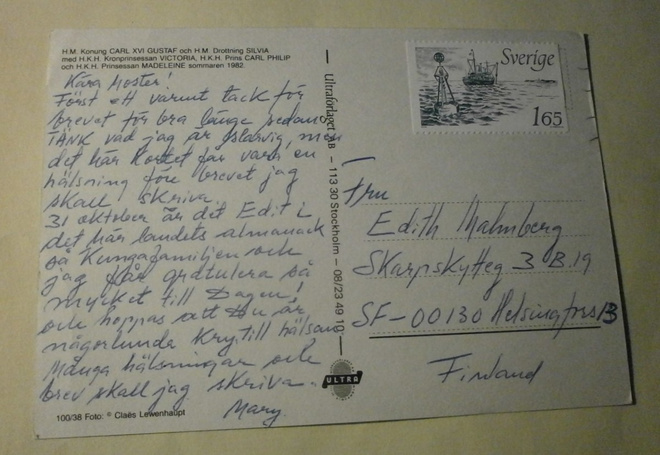 H.M. Konung CARL XVI GUSTAF och H.M. Drottning SILVIA
med H.K.H. Kronprinsessan VICTORIA, H.K.H. Prins CARL PHILIP
och H.K.H. Prinsessan MADELEINE sommaren 1982.
Kära Moster!
Först ett varmt tack för
brevet för bra länge sedan
TÄNK vad jag är slarvig, men
det här kortet får vara en
hälsning före brevet jag
skall skriva.
31 oktober är det Edit i
det här landets almanack
så Kungafamiljen och
jag får gratulera så
mycket till Dagen!
och hoppas att Du är
någorlunda kry till hälsan
Många hälsningar och
brev skall jag skriva.
Mary.
100/38 Foto: © Claës Lewenhaupt
Ultraförlaget AB – 113 30 Stockholm – 08/23 49 10
ULTRA
Sverige
165
Fru
Edith Malmberg
Skarpskytteg 3 B. 19
SF-00130 Helsingfors 13
Finland